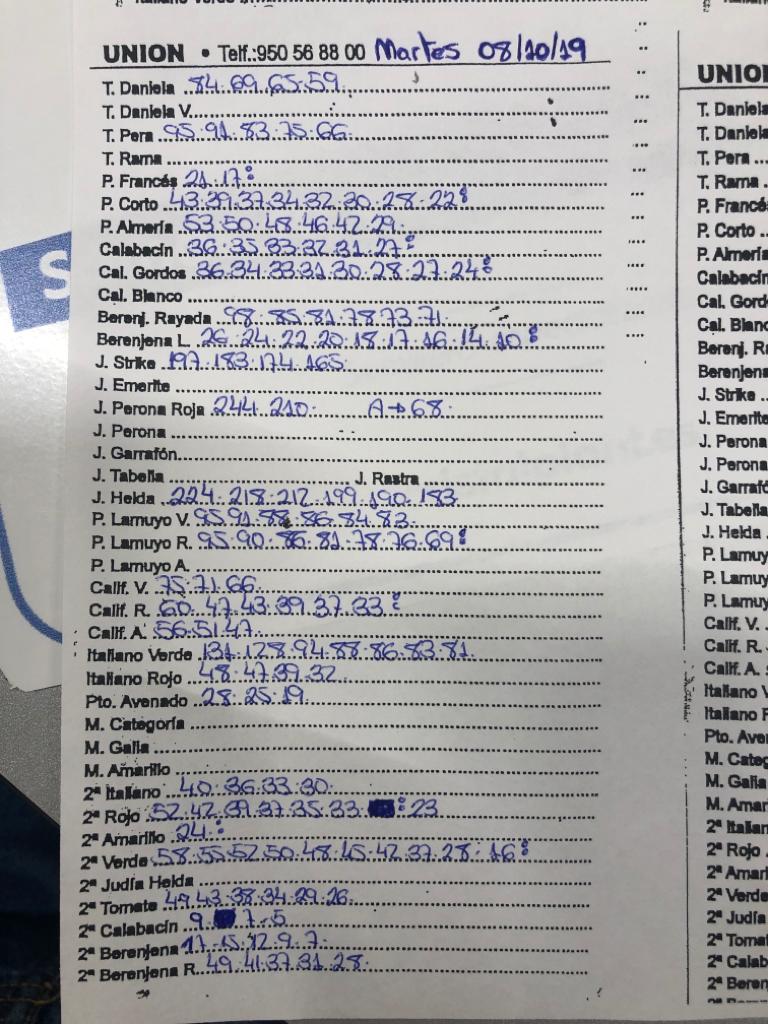 UNION • Telf.:950 56 88 00 Martes 08/10/19
T. Daniela 84.69.65.59
T. Daniela V.
T. Pera 95.91.83.75.66
T. Rama
P. Francés 21.17:
P. Corto 43.39.37.34.32.30.28.22:
P. Almería 53.50.48.46.42.29
Calabacín 36.35.33.32.31.27:
Cal. Gordos 36.34.33.31.30.28.27.24:
Cal. Blanco
Berenj. Rayada 98.85.81.78.73.71
Berenjena L. 26.24.22.20.18.17.16.14.10:
J. Strike 197.183.174.165
J. Emerite
J. Perona Roja 244.210. A→68.
J. Perona
J. Garrafón
J. Tabella J. Rastra
J. Helda 224.218.212.199.190.183
P. Lamuyo V. 95.91.88.86.84.83
P. Lamuyo R. 95.90.86.81.78.76.69:
P. Lamuyo A.
Calif. V. 75.71.66
Calif. R. 60.47.43.39.37.33:
Calif. A. 56.51.47
Italiano Verde 131.128.94.88.86.83.81
Italiano Rojo 48.47.39.32
Pto. Avenado 28.25.19
M. Categoría
M. Galia
M. Amarillo
2ª Italiano 40.36.33.30
2ª Rojo 52.42.39.37.35.33 : 23
2ª Amarillo 24:
2ª Verde 58.55.52.50.48.45.42.37.28.16:
2ª Judía Helda
2ª Tomate 49.43.38.34.29.26
2ª Calabacín 9. 7.5
2ª Berenjena 17.15.12.9.7
2ª Berenjena R. 49.41.37.31.28
UNIO
T. Daniela
T. Daniela
T. Pera
T. Rama
P. Francé
P. Corto
P. Almería
Calabacín
Cal. Gord
Cal. Blanc
Berenj. Ra
Berenjena
J. Strike
J. Emerite
J. Perona
J. Perona
J. Garrafó
J. Tabella
J. Helda
P. Lamuy
P. Lamuy
P. Lamuy
Calif. V.
Calif. R.
Calif. A.
Italiano V
Italiano F
Pto. Ave
M. Categ
M. Galia
M. Amar
2ª Italian
2ª Rojo
2ª Amari
2ª Verde
2ª Judía
2ª Toma
2ª Calab
2ª Beren